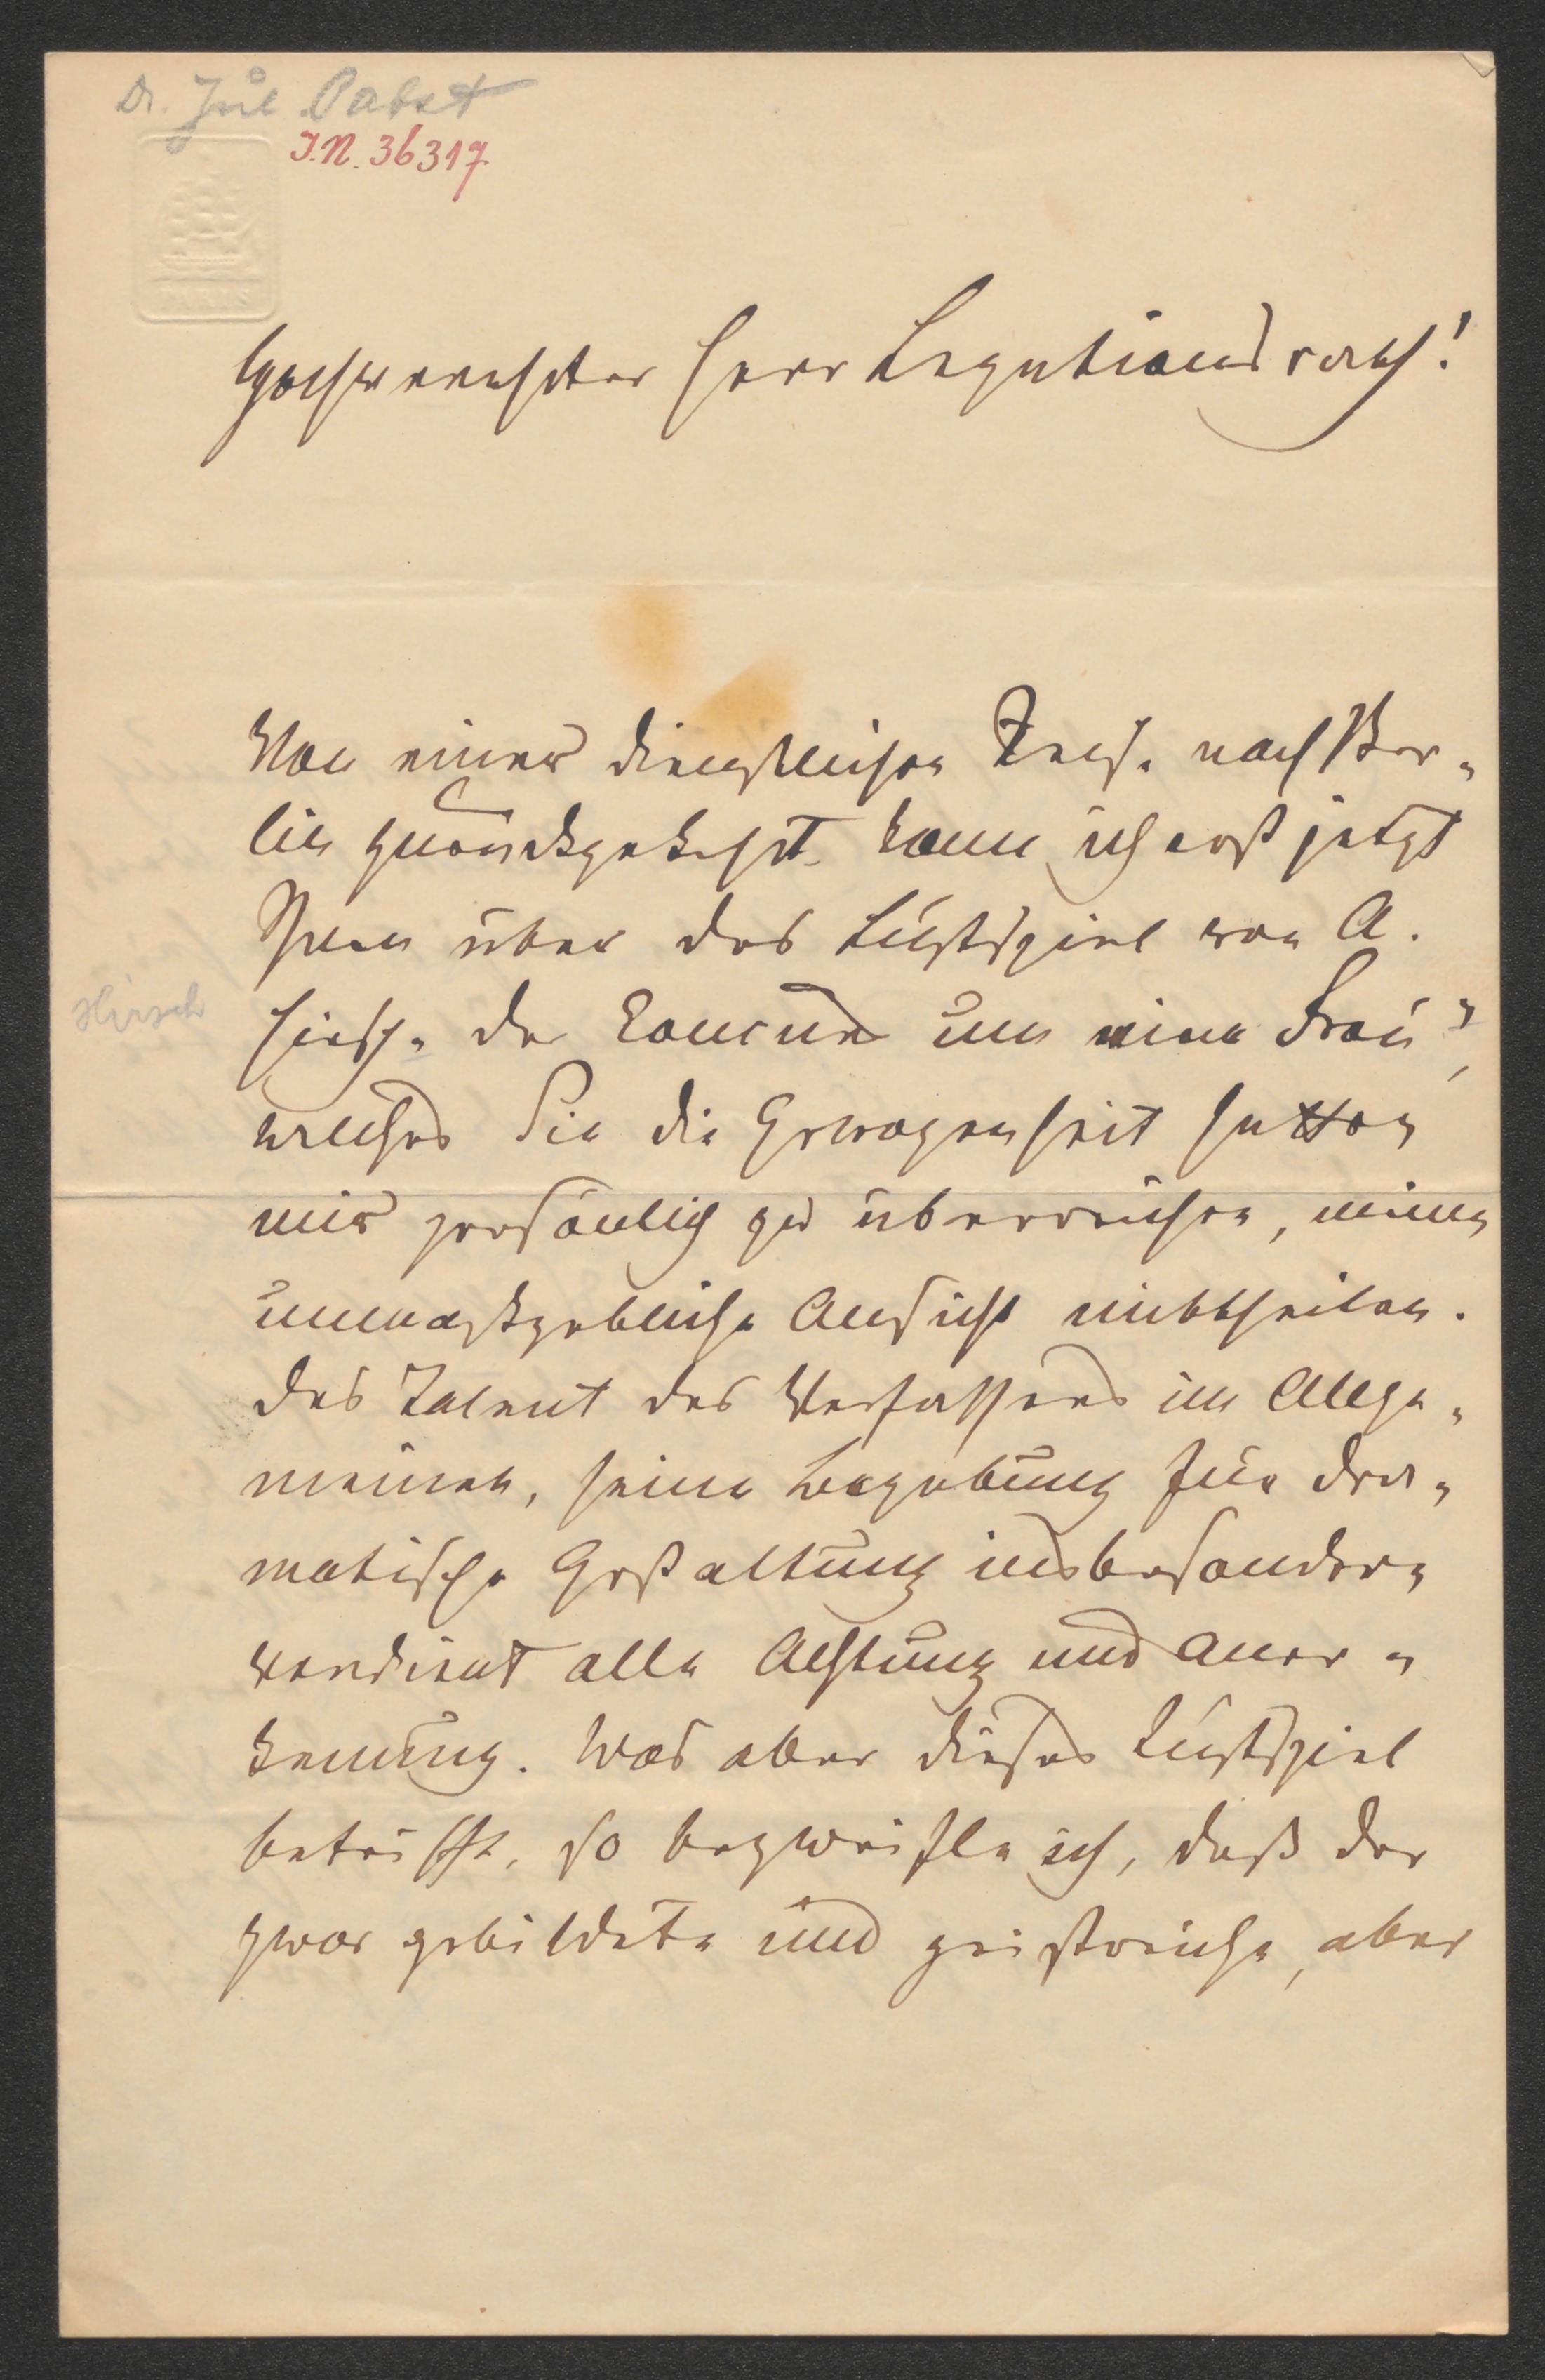 Dr. Jul Pabst
I.N. 36317
Hochverehrter Herr Legationsrath!
Von einer dienstlichen Reise nach Ber-
lin zurückgekehrt kann ich erst jetzt
Ihnen über das Lustspiel von A.
Hirsch
Hirsch „der Concurs um eine Frau",
welches Sie die Gewogenheit hatten
mir persönlich zu überreichen, meine
unmaßgebliche Ansicht mittheilen.
Das Talent des Verfassers im Allge-
meinen, seine Begabung für dra-
matische Gestaltung insbesondere
verdient alle Achtung und Aner-
kennung. Was aber dieses Lustspiel
betrifft, so bezweifle ich, daß der
zwar gebildete und geistreiche, aber